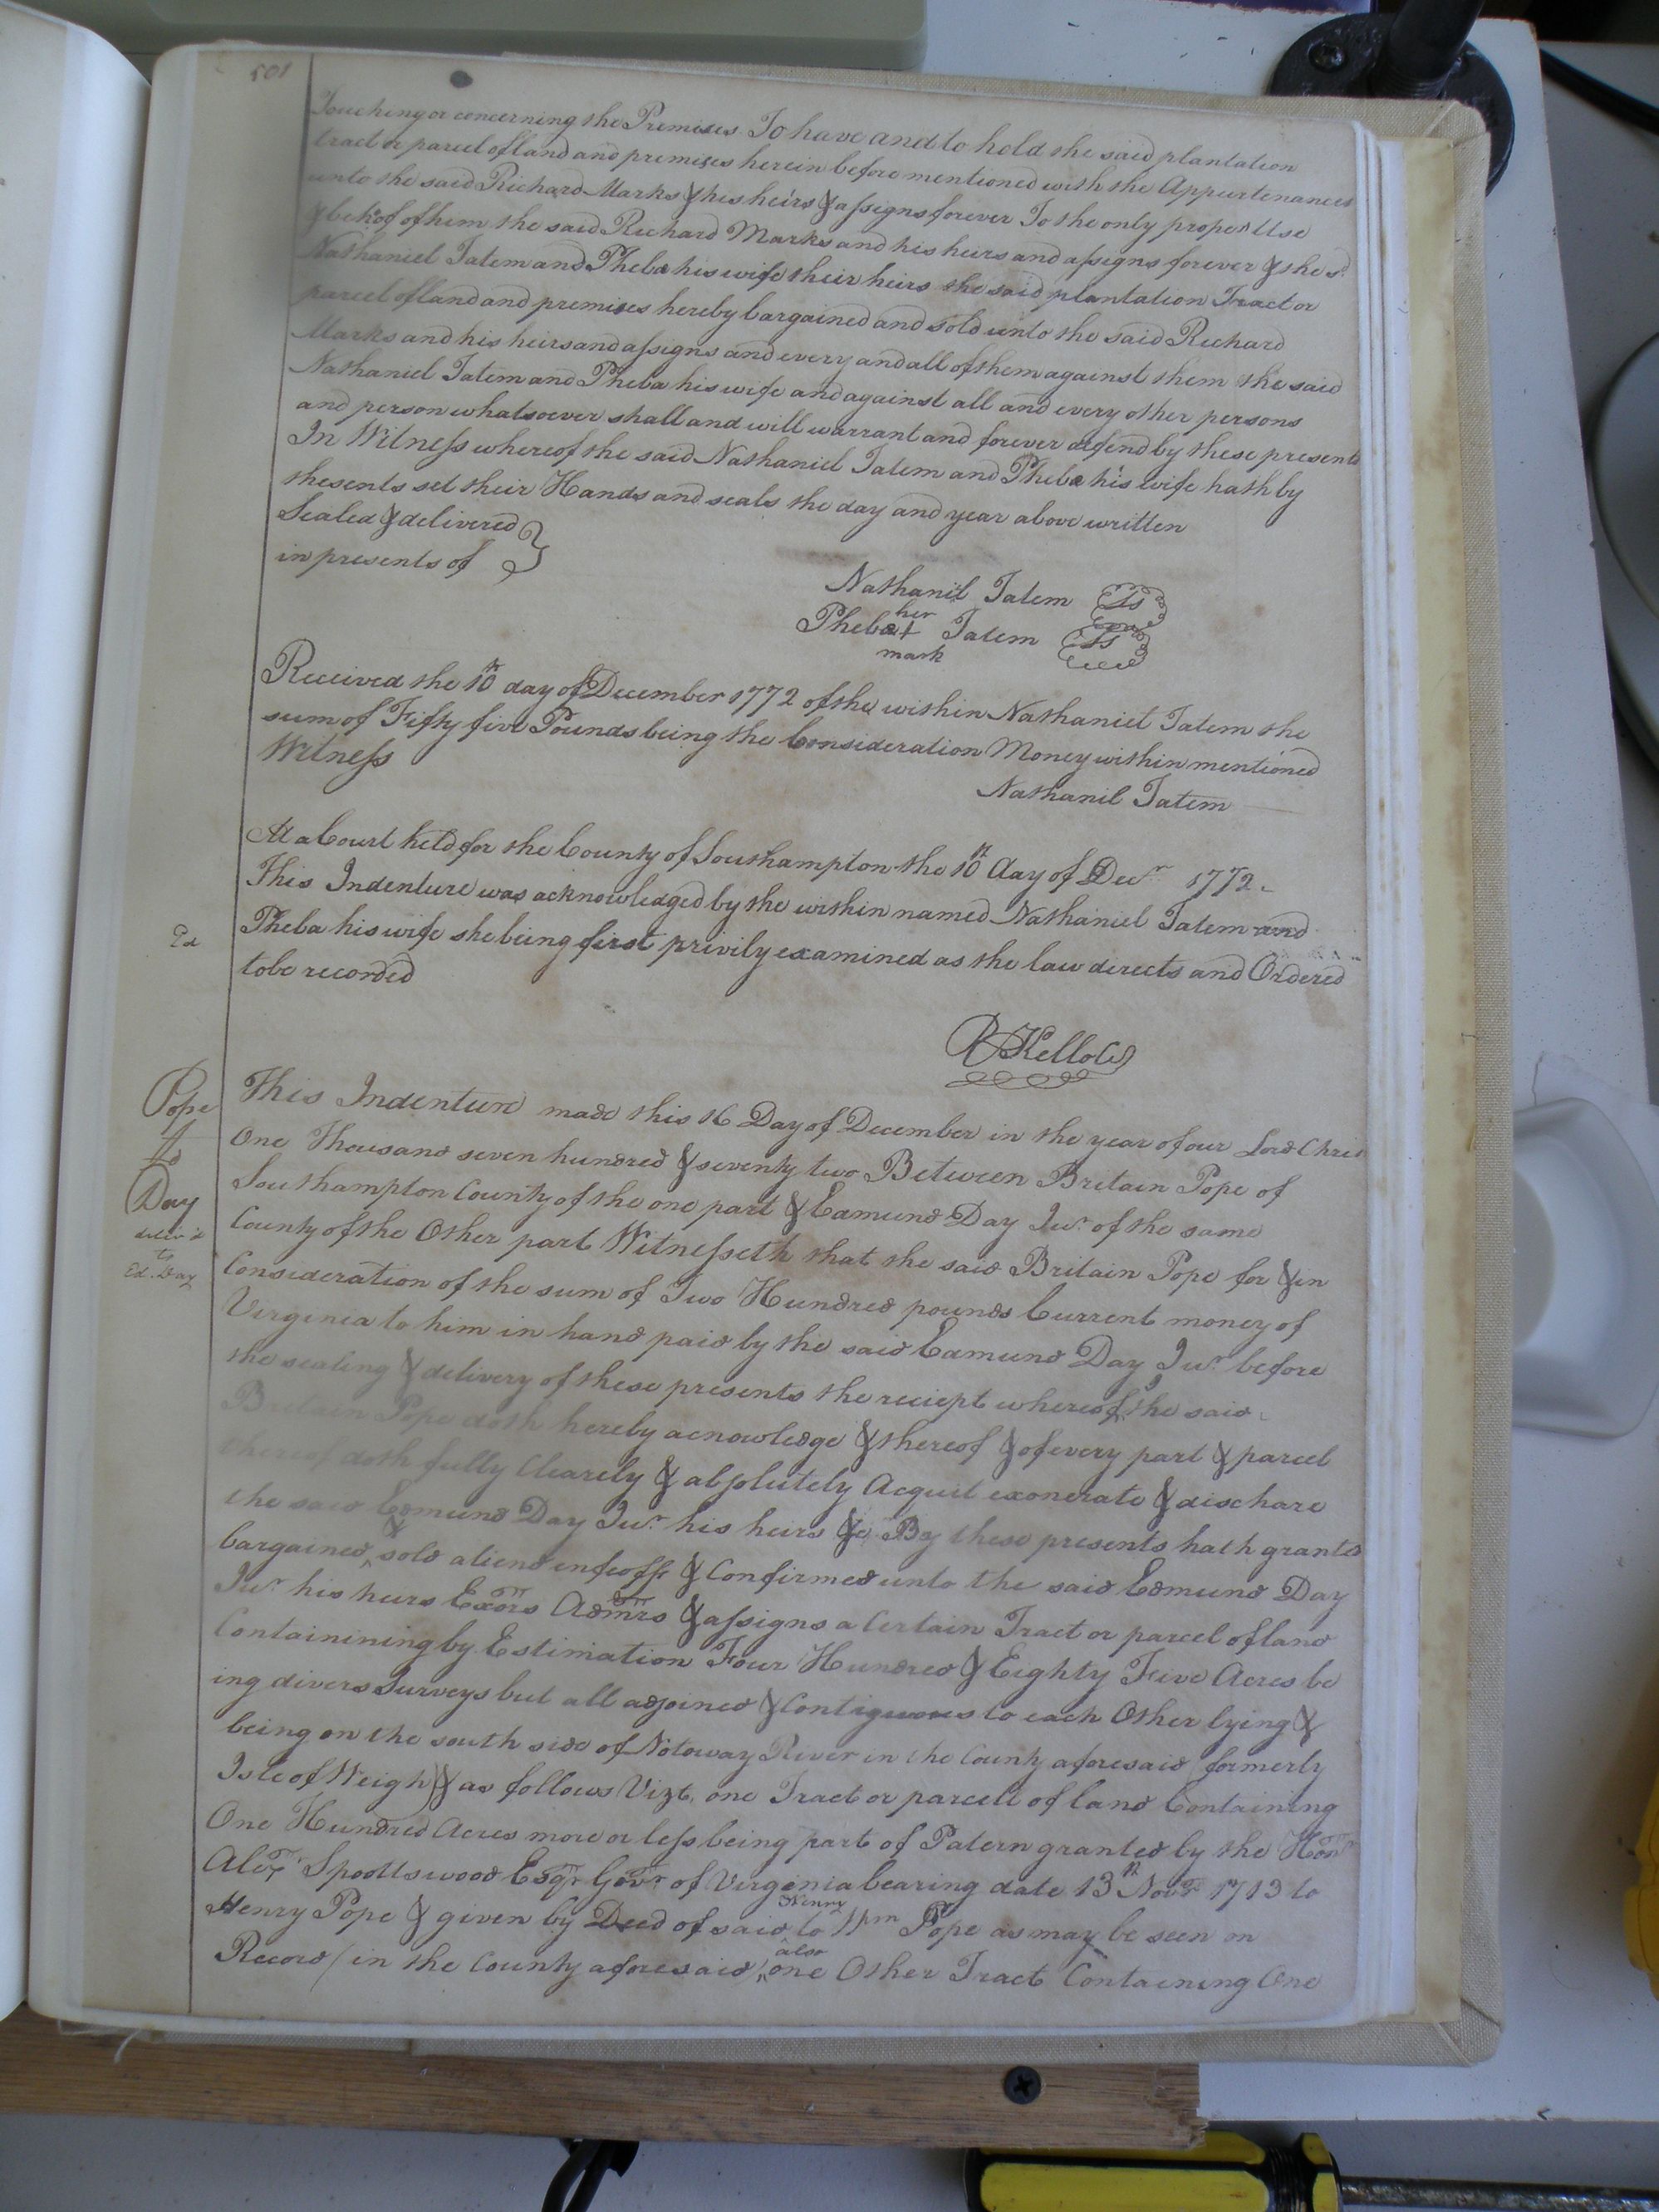 501
Touching or concerning the Premises To have and to hold the said plantation
tract or parcel of land and premises herein before mentioned with the Appurtenances
unto the said Richard Marks & his heirs & assigns forever To the only proper Use
& behoof of him the said Richard Marks and his heirs and assigns forever & the sd.
Nathaniel Tatem and Pheba his wife their heirs the said plantation Tract or
parcel of land and premises hereby bargained and sold unto the said Richard
Marks and his heirs and assigns and every and all of them against them the said
Nathaniel Tatem and Pheba his wife and against all and every other persons
and person whatsoever shall and will warrant and forever defend by these presents
In Witness whereof the said Nathaniel Tatem and Pheba his wife hath by
thesents set their Hands and seals the day and year above written
Sealed & delivered
in presents of
Nathanil Tatem Ls
her
Pheba + Tatem Ls
mark
Received the 10th day of December 1772 of the within Nathaniel Tatem the
sum of Fifty five Pounds being the Consideration Money within mentioned
Witness
Nathanil Tatem
At a Court held for the County of Southampton the 10th day of Decr. 1772.
This Indenture was acknowledged by the within named Nathaniel Tatem and
Ed
Pheba his wife she being first privily examined as the law directs and Ordered
to be recorded
R Kello Ck
Pope
to
Day
deliv'd
to
Ed. Day
This Indenture made this 16 Day of December in the year of our Lord Chris
One Thousand seven hundred & seventy two Between Britain Pope of
Southampton County of the one part & Edmund Day Junr. of the same
County of the Other part Witnesseth that the said Britain Pope for & in
Consideration of the sum of Two Hundred pounds Current money of
Virginia to him in hand paid by the said Edmund Day Junr. before
the sealing & delivery of these presents the reciept whereof the said
Britain Pope doth hereby acnowledge & thereof & of every part & parcel
thereof doth fully Clearely & absolutely Acquit exonerate & dischare
the said Edmund Day Junr. his heirs &c By these presents hath granted
bargained & sold aliend enfeoff & Confirmed unto the said Edmund Day
Junr. his heirs Exors Admrs & assigns a Certain Tract or parcel of land
Containining by Estimation Four Hundred & Eighty Five Acres be
ing divers Surveys but all adjoined & Contiguous to each Other lying &
being on the south side of Notoway River in the County aforesaid (formerly
Isle of Weigh) & as follows Vizt. one Tract or parcell of land Containing
One Hundred Acres more or less being part of Patern granted by the Honr.
Alexr. Spoottswood Esqr. Govr. of Virginia bearing date 13th Novr. 1713 to
Henry Pope & given by Deed of said Henry to Wm Pope as may be seen on
Record / in the County aforesaid / also one Other Tract Containing One